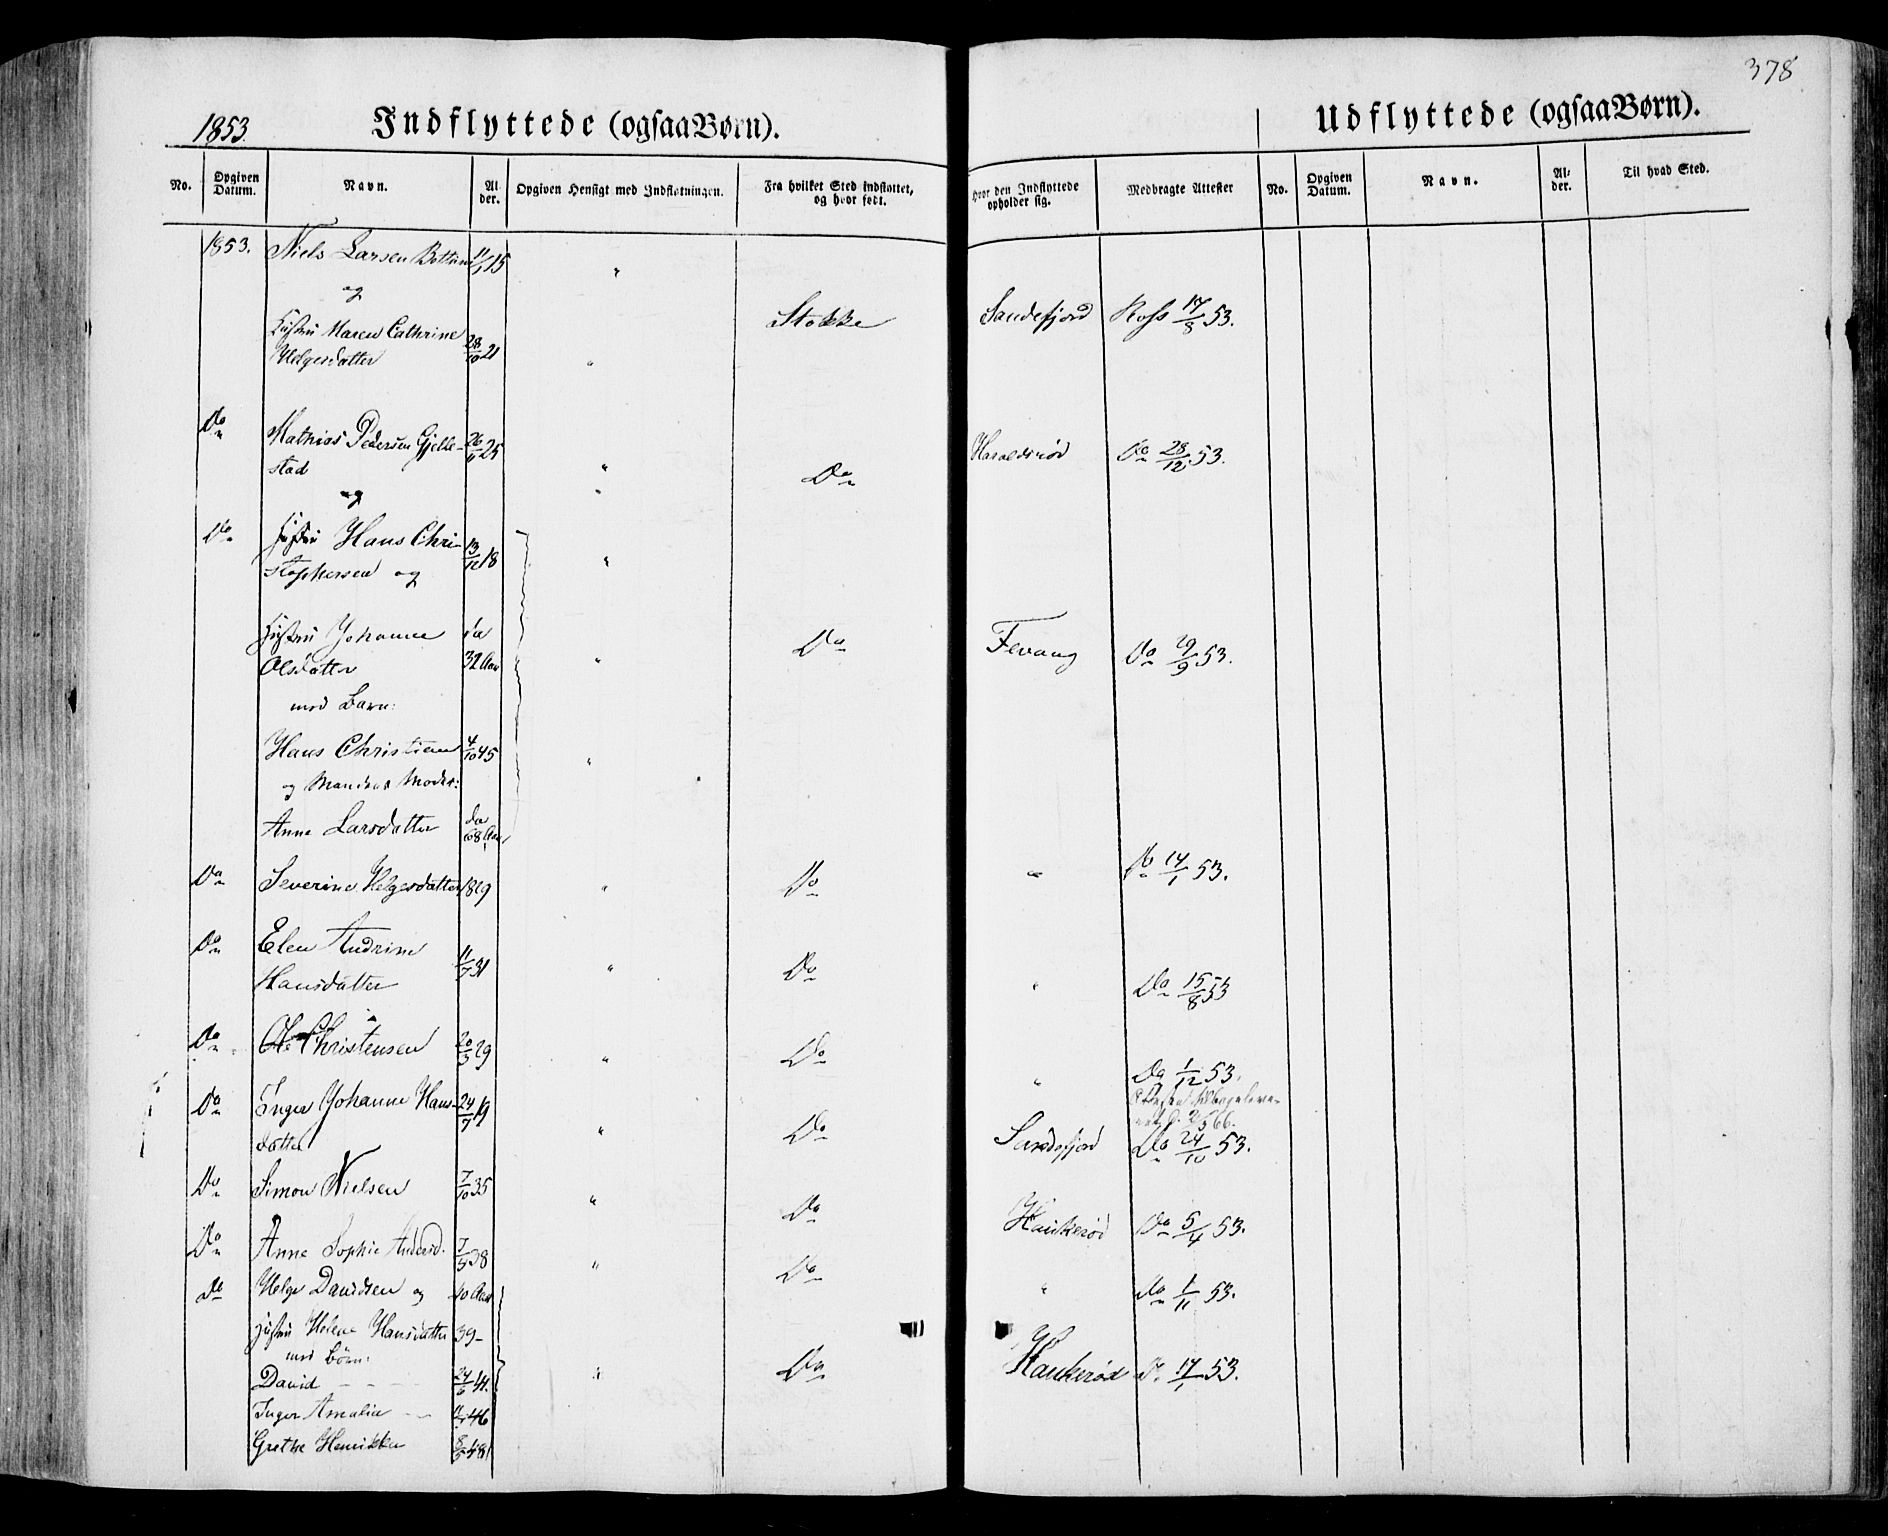 378
1853.
Indflyttede (ogsaa Børn).
Udflyttede (ogsaa Børn).
No.
Opgiven Datum.
Navn.
Alder.
Opgiven Hensigt med Indflytningen.
Fra hvilket Sted indflyttet, og hvor født.
Hvor den Indflyttede opholder sig.
Medbragte Attester
No.
Opgiven Datum.
Navn.
Alder.
Til hvad Sted.
1853. Niels Larsen 11/1 15 "
og
Hustru Maren Cathrine Stokke Sandefjord Ross 17/8 53.
Helgesdatter 28/10 21 "
Do Mathias Pedersen Gjelle- 26/11 25 Haraldsrød Do 28/12 53.
stad " Do
og "
Do Hustru Hans Chri- 13/12 18 "
stophersen og
Hustru Johanne Do Fevang Do 29/9 53.
Olsdatter 32 Aar "
med Barn:
Hans Christian 4/10 45 "
og Mandens Moder:
Anne Larsdatter 68 Aar
Do Severine Helgesdatter 1829 " Do " Do 14/1 53.
Do Elen Andrine
Hansdatter 11/7 31 " Do " Do 15/8 53
Do Ole Christensen 20/3 29 " Do " Do 1/12 53.
Do Inger Johanne Hans- 24/7 19
datter " Do Sandefjord Do 24/10 53.
Do Simon Nielsen 7/10 35 " Do Haukerød Do 5/4 53.
Do Anne Sophie Andersd. 7/5 38 " Do " Do 1/11 53.
Do Helge Davidsen og 40 Aar
Hustru Helene Hansdatter 39 -
med Børn:
David 24/6 41. " Do Haukerød Do 14/1 53.
Inger Amalie 46
Grethe Henrikke 48